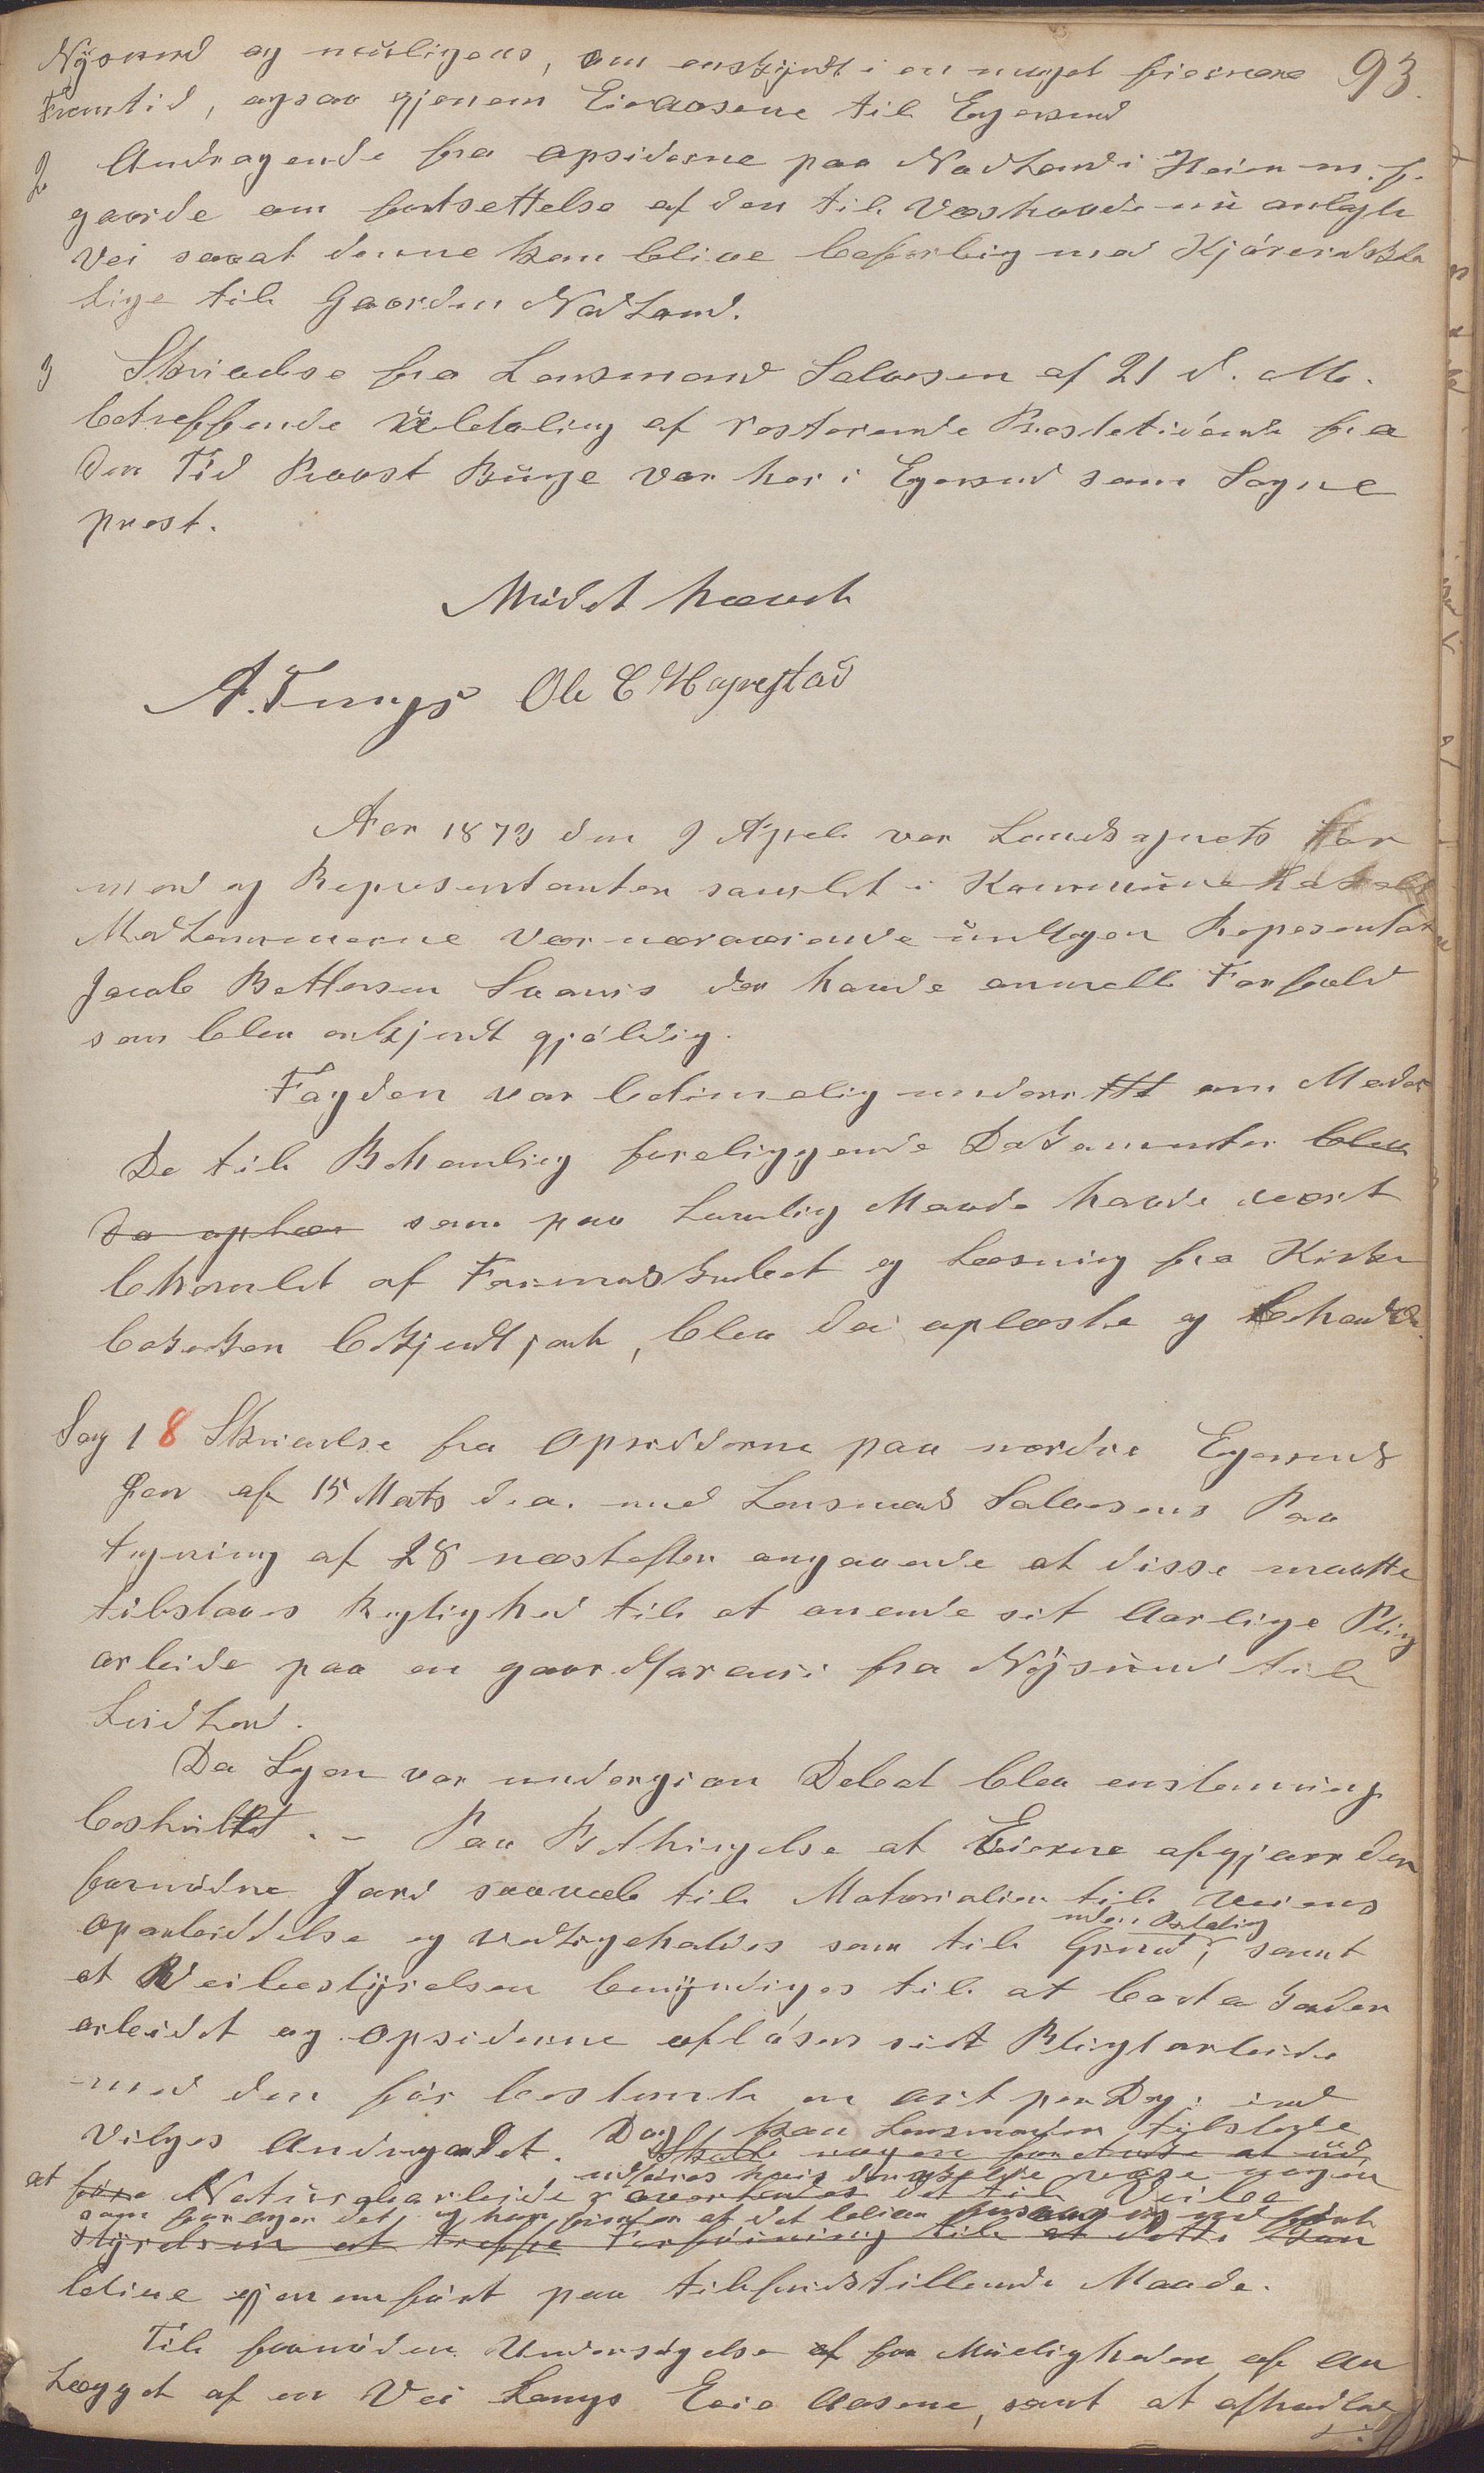 93.
Nysund og muligens, om enskjøndt i en noget fjernere
Fremtid, ogsaa gjenem Eieaasene til Egersund
2 Andragende fra Opsiderne paa Nodland i Heien m. fl.
gaarde om fortsettelse af den til Vashovde nu anlagte
Vei saaat denne kan blive befarlig med Kjøreredska
lige til Gaarden Nodland.
3 Skrivelse fra Lensmand Salvesen af 21 d. M.
betreffende Udbetaling af resterende Prestetiende fra
den Tid Provst Bünge var her i Egersund som Sogne
prest.
Mødet hævet
A. Tengs Ole C Hafrestad
Aar 1873 den 9 April var Landsognets For
mend og Representanter samlet i Kommunelokalet
Medlemmerne var nærværende undtagen Representant
Jacob Bettersen Svanis der havde anmelt Forfald
som blev erkjendt gjældig.
Fogden var betimelig underrettet om Mødet
De til Behandling foreliggende Dokumenter blev
da oplæs som paa lovlig Maade havde vært
behandlet af Formandskabet og Læsning fra Kirke
bakken bekjendtgjort, blev dei oplæste og behandl
Sag 1 8 Skrivelse fra Opsidderne paa nordre Egersunds
øen af 15 Marts d. a. med Lensmand Salvesens Paa
tegning af 28 næstefter angaaende at disse maatte
tilstaaes Rettighed til at anvende sit Aarlige Plig
arbeide paa en gaardfarvei fra Nysund til
Leidland.
Da Sagen var undergivn Debat blev enstemmig
besluttet. – Paa Bethingelse at Eierne afgjøre den
fornødne Jord saavel til Materialier til Veiens
Oparbeidelse og vedligeholdes som til Grund, uden Betaling samt
at Veibestyrelsen bemyndiges til at bortakordere
arbeidet og Opsiderne afløser sit Pligtarbeide
med den før bestemte en ort per Dag; ind
vilges Andragendet. Dog kan Lensmanden tilstede
Skulle nogen foretrække at ud
at føre Naturalarbeide udføres hvis der skulde være nogen
som forlanger det, og han finder at det bliver
styrelsen at treffe Forføining til at dette kan
blive gjenemført paa tilfredstillende Maade.
Til fornøden Undersøgelse af for Mueligheden af An
lægget af en Vei langs Eeie Aasene, samt at afhandle